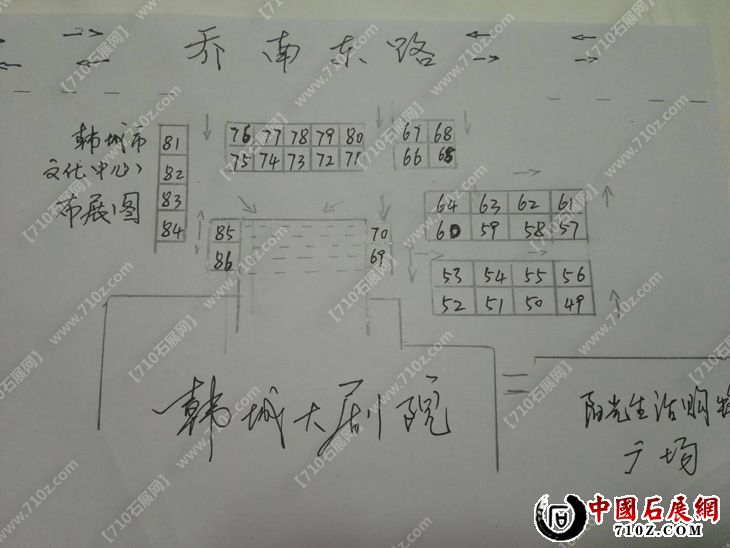 乔南东路
韩城市
文化（中心）
布展图
81
82
83
84
76 77 78 79 80
75 74 73 72 71
67 68
66 65
64 63 62 61
60 59 58 57
53 54 55 56
52 51 50 49
85
86
70
69
韩城大剧院
阳光生活购物
广场
中國石展網
710Z.COM
【710石展网】
www.710z.com